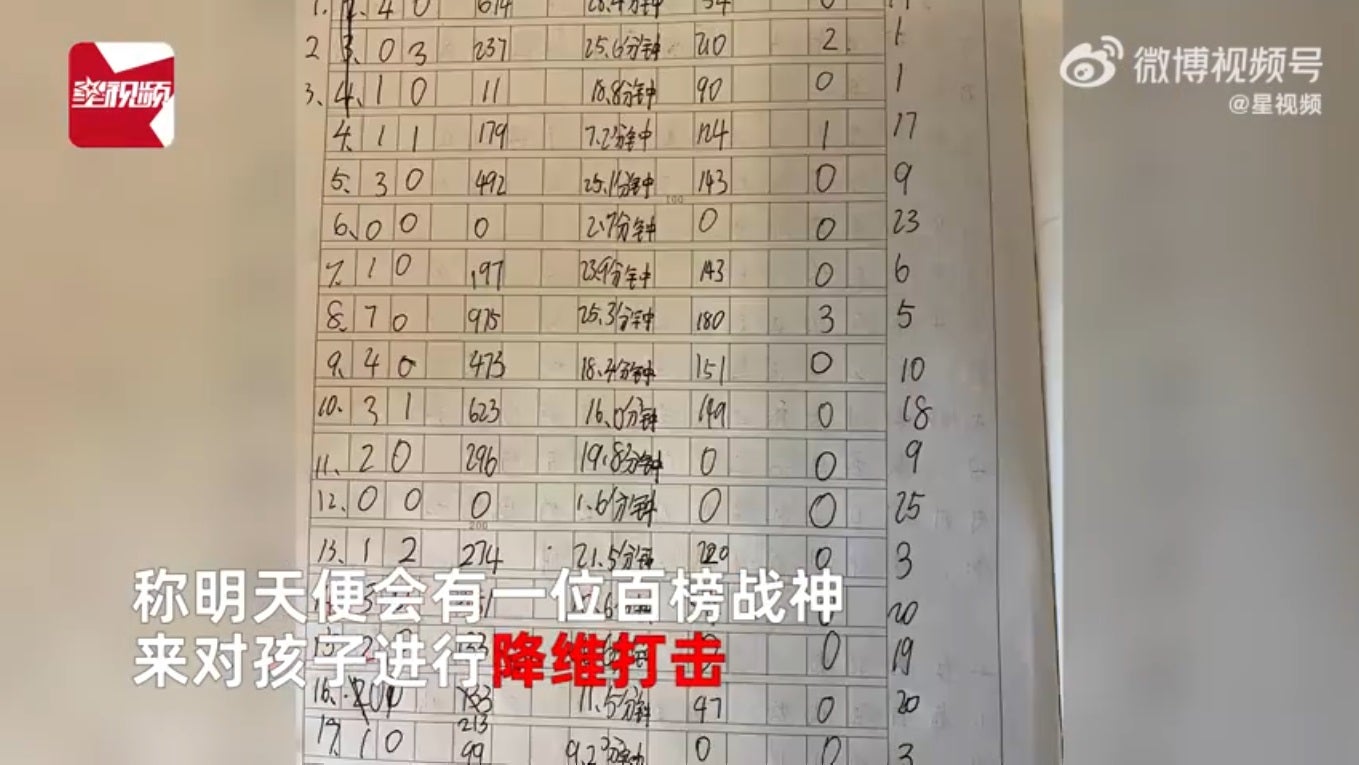 星视频
微博视频号
@星视频
1. 4 0 614 28.4分钟 34 0
2 3. 0 3 237 25.6分钟 210 2 1
3. 4. 1 0 11 18.8分钟 90 0 1
4. 1 1 179 7.2分钟 124 1 17
5. 3 0 492 25.1分钟 143 0 9
100
6. 0 0 0 2.7分钟 0 0 23
7. 1 0 197 23.9分钟 143 0 6
8. 7 0 975 25.3分钟 180 3 5
9. 4 0 473 18.4分钟 151 0 10
10. 3 1 623 16.0分钟 149 0 18
11. 2 0 296 19.8分钟 0 0 9
12. 0 0 0 1.6分钟 0 0 25
200
13. 1 2 274 21.5分钟 220 0 3
20
0 19
16. 11.5分钟 47 0 20
213
17. 1 0 99 9.2分钟 0 0 3
称明天便会有一位百榜战神
来对孩子进行降维打击